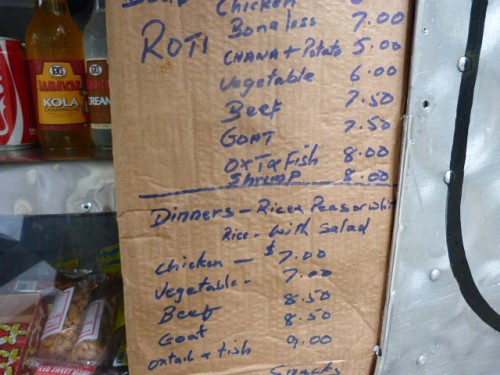 Chicken
ROTI Boneless 7.00
CHANA + Potato 5.00
Vegetable 6.00
Beef 7.50
GOAT 7.50
OXTa Fish 8.00
Shrimp 8.00
Dinners - Rice & Peas or whi
Rice - with Salad
Chicken - $7.00
Vegetable - 7.00
Beef 8.50
Goat 8.50
Oxtail & fish 9.00
Snacks
KOLA
CHAMPAGNE
CREAM